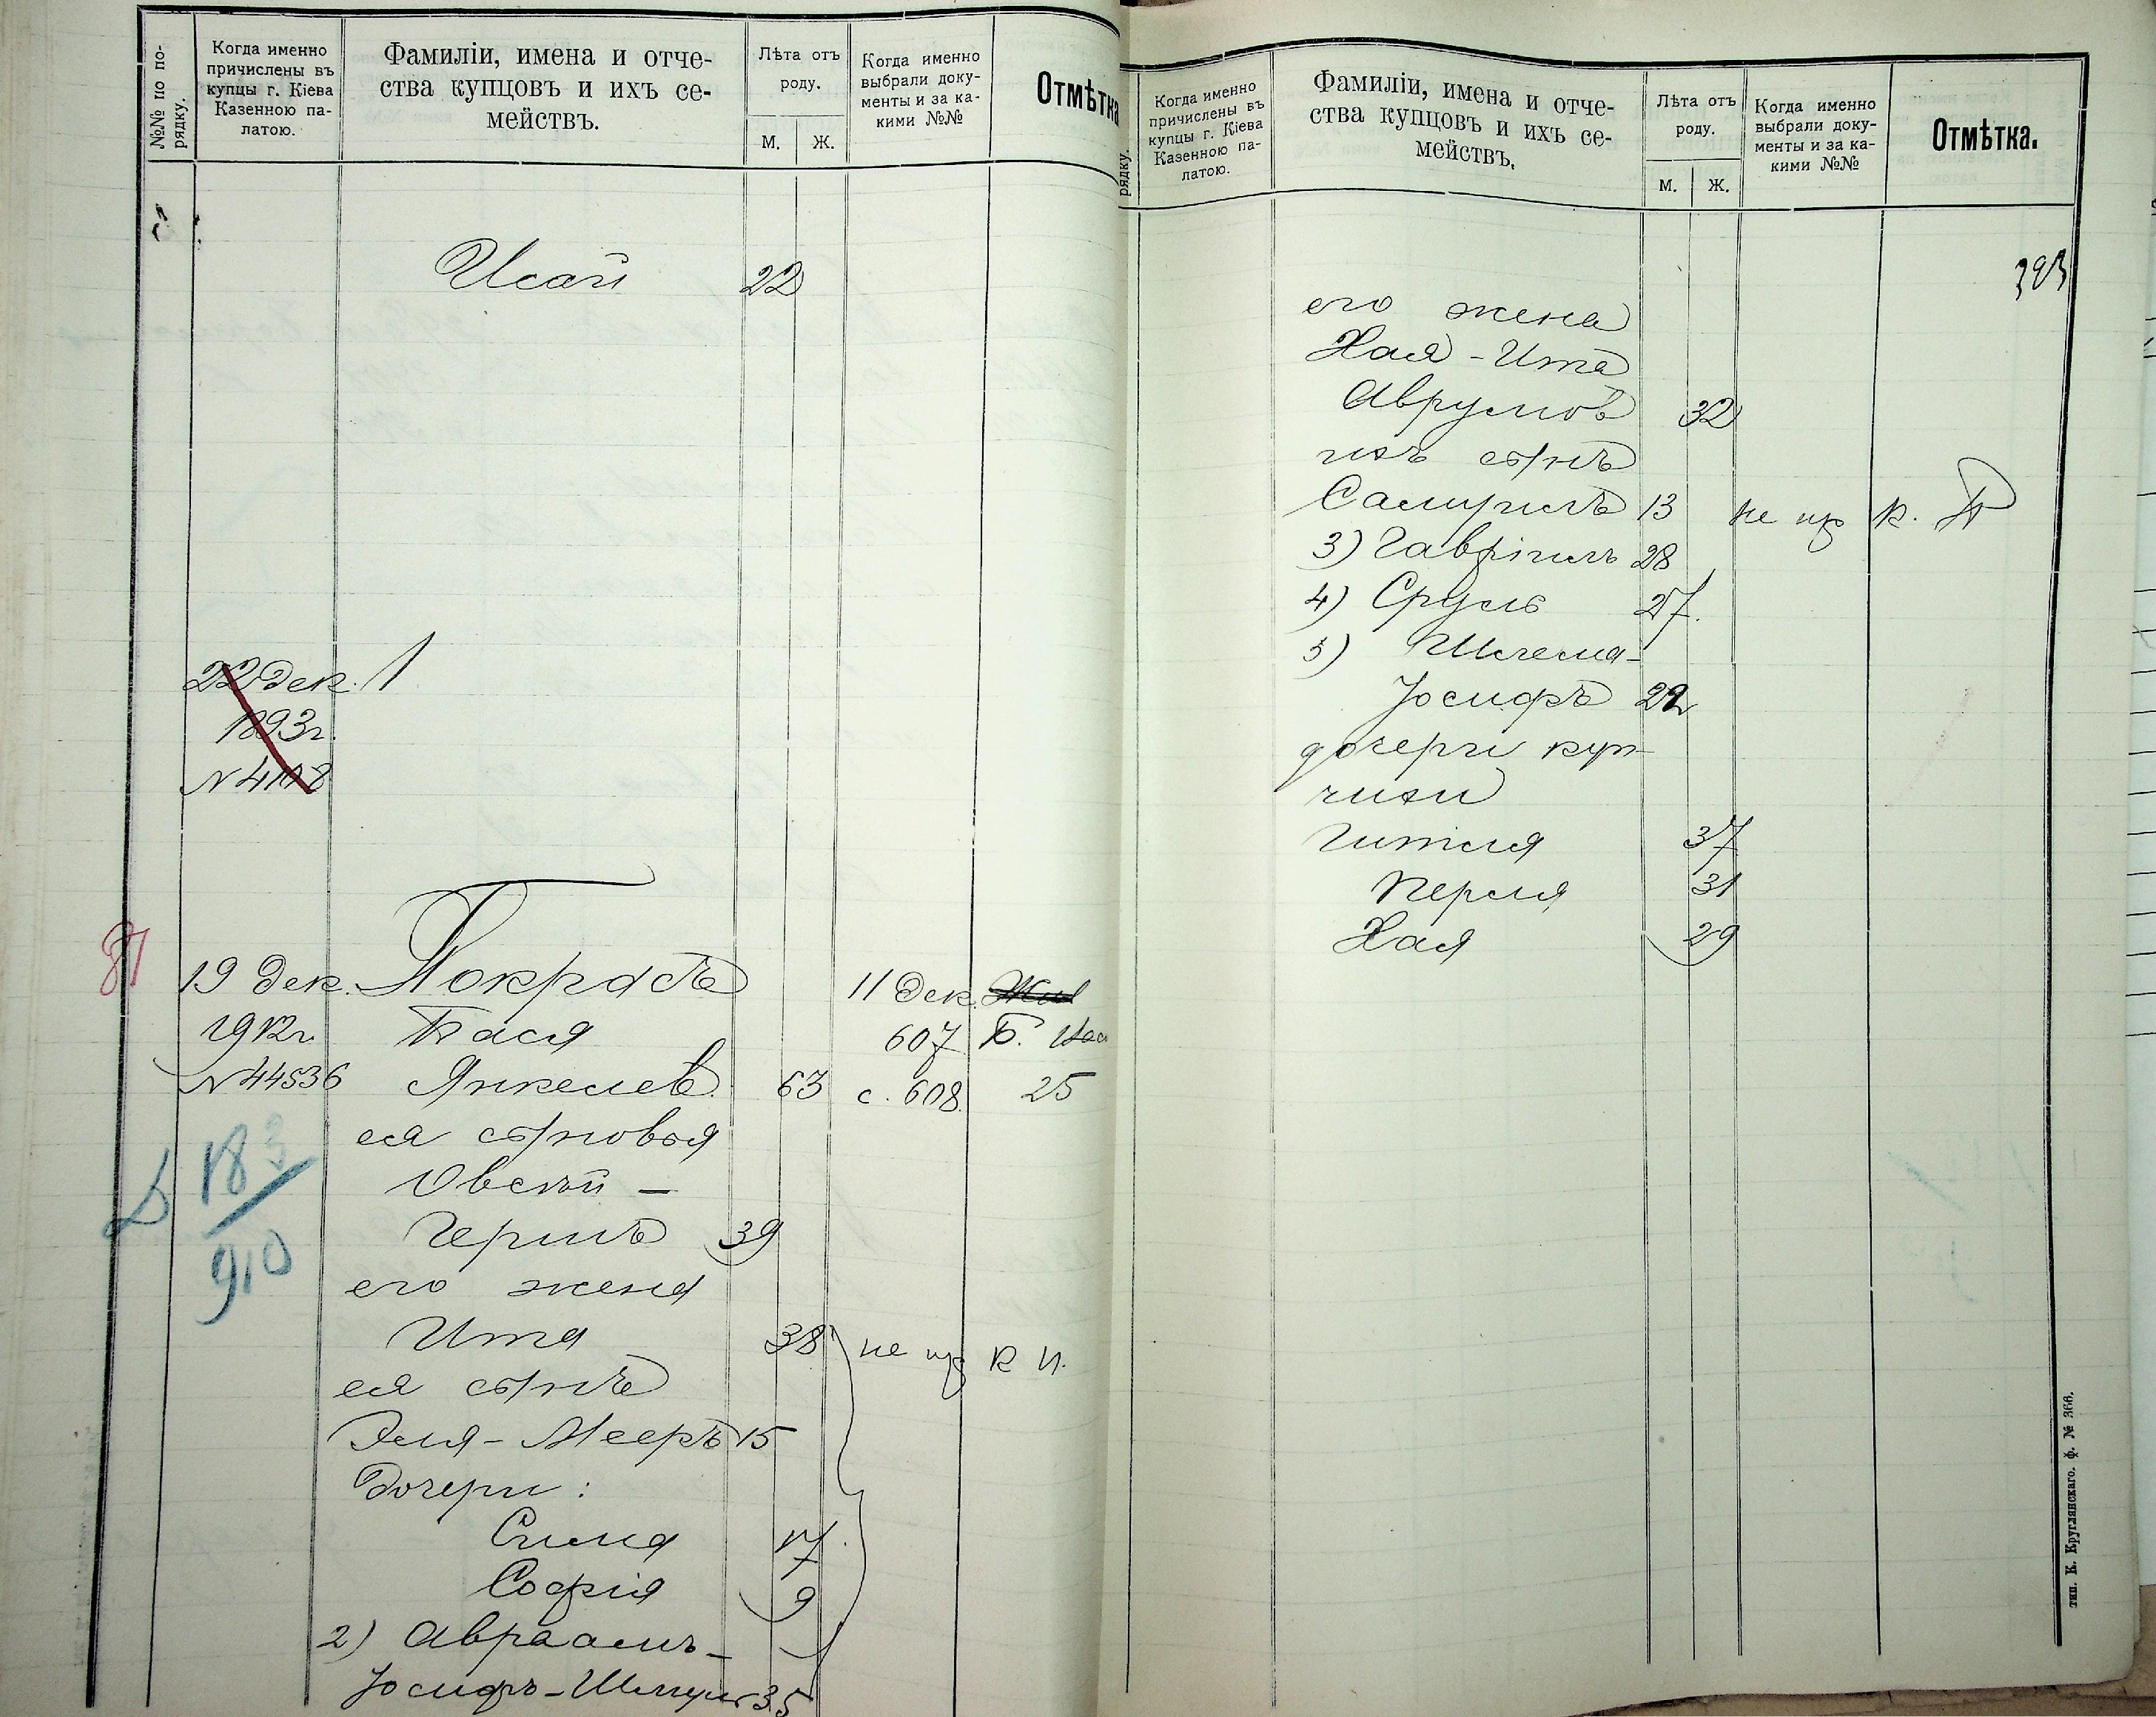 №№ по по-
рядку.
Когда именно
причислены въ
купцы г. Кіева
Казенною па-
латою.
Фамиліи, имена и отче-
ства купцовъ и ихъ се-
мействъ.
Лѣта отъ
роду.
М. Ж.
Когда именно
выбрали доку-
менты и за ка-
кими №№
Отмѣтка
Исай 22
22 дек. 1
1893г.
№ 4108
81
19 дек. Покрасъ 11 дек.
1912г. Бася 607 Б. Вас
№ 44536 Янкелев. 63 с. 608 25
ея сыновья
Овсѣй -
Гершъ 39
183
910
его жена
Ита 38 не пр к п.
ея сынъ
Эля-Мееръ 15
Дочери:
Сима 17
Софія 9
2) Авраамъ-
Іосифъ-Шмуль 35
рядку.
Когда именно
причислены въ
купцы г. Кіева
Казенною па-
латою.
Фамиліи, имена и отче-
ства купцовъ и ихъ се-
мействъ.
Лѣта отъ
роду.
М. Ж.
Когда именно
выбрали доку-
менты и за ка-
кими №№
Отмѣтка.
393
его жена
Хая-Ита
Аврумов 32
ихъ сынъ
Самуилъ 13 не пр к. п
3) Гавріилъ 28
4) Сруль 27.
5) Шлема-
Іосифъ 22
дочери куп-
чихи
Гитля 37
Перля 31
Хая 29
тип. К. Круглянскаго. ф. № 366.